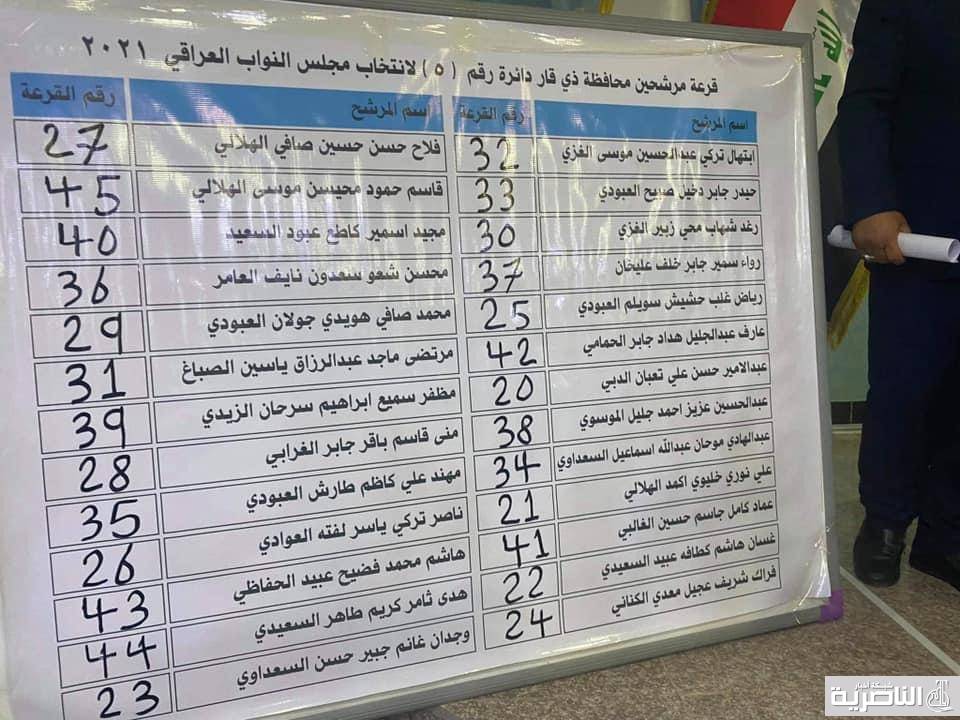 قرعة مرشحين محافظة ذي قار دائرة رقم (٥) لانتخاب مجلس النواب العراقي ٢٠٢١
اسم المرشح رقم القرعة اسم المرشح رقم القرعة
ابتهال تركي عبدالحسين موسى الغزي 32 فلاح حسن حسين صافي الهلالي 27
حيدر جابر دخيل صريح العبودي 33 قاسم حمود محيسن موسى الهلالي 45
رغد شهاب محي زبير الغزي 30 مجيد اسمير كاطع عبود السعيد 40
رواء سمير جابر خلف عليخان 37 محسن شعو سعدون نايف العامر 36
رياض غلب حشيش سويلم العبودي 25 محمد صافي هويدي جولان العبودي 29
عارف عبدالجليل هداد جابر الحمامي 42 مرتضى ماجد عبدالرزاق ياسين الصباغ 31
عبدالامير حسن علي تعبان الدبي 20 مظفر سميع ابراهيم سرحان الزيدي 39
عبدالحسين عزيز احمد جليل الموسوي 38 منى قاسم باقر جابر الغرابي 28
عبدالهادي موحان عبدالله اسماعيل السعداوي 34 مهند علي كاظم طارش العبودي 35
علي نوري خليوي اكمد الهلالي 21 ناصر تركي ياسر لفته العوادي 26
عماد كامل جاسم حسين الغالبي 41 هاشم محمد فضيح عبيد الحفاظي 43
غسان هاشم كطافه عبيد السعيدي 22 هدى ثامر كريم طاهر السعيدي 44
فراك شريف عجيل معدي الكناني 24 وجدان غانم جبير حسن السعداوي 23
شبكة اخبار
الناصرية